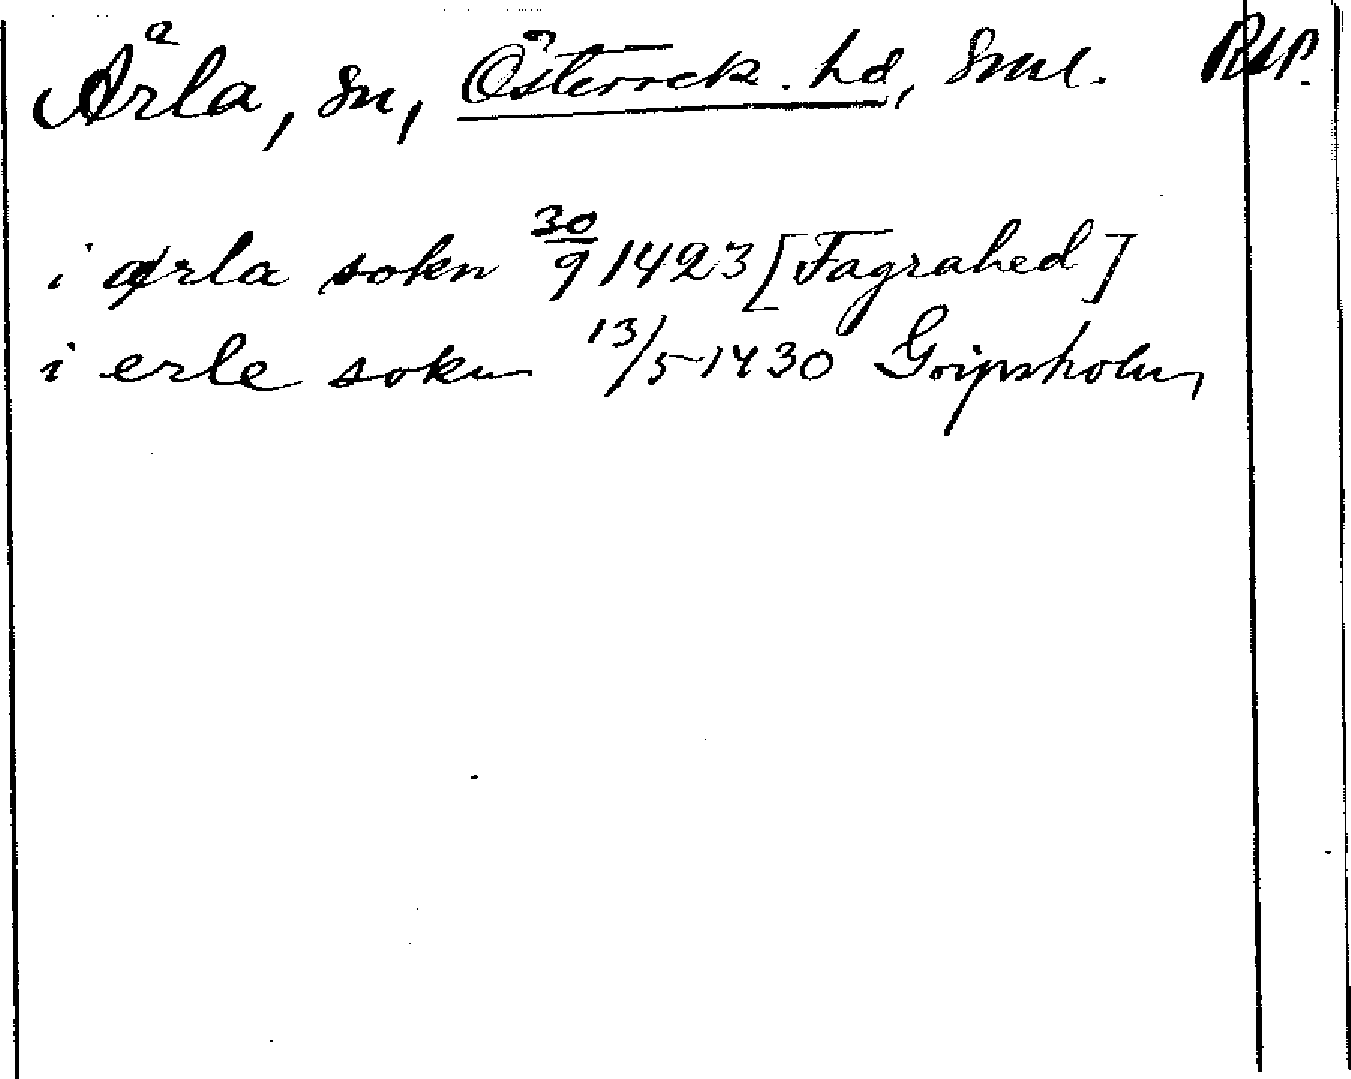 Ärla, sn, Österrek. hd, Sml. RAP.
i ærla sokn 30/9 1423 [Fagrahed]
i erle sokn 13/5 1430 Gripsholm